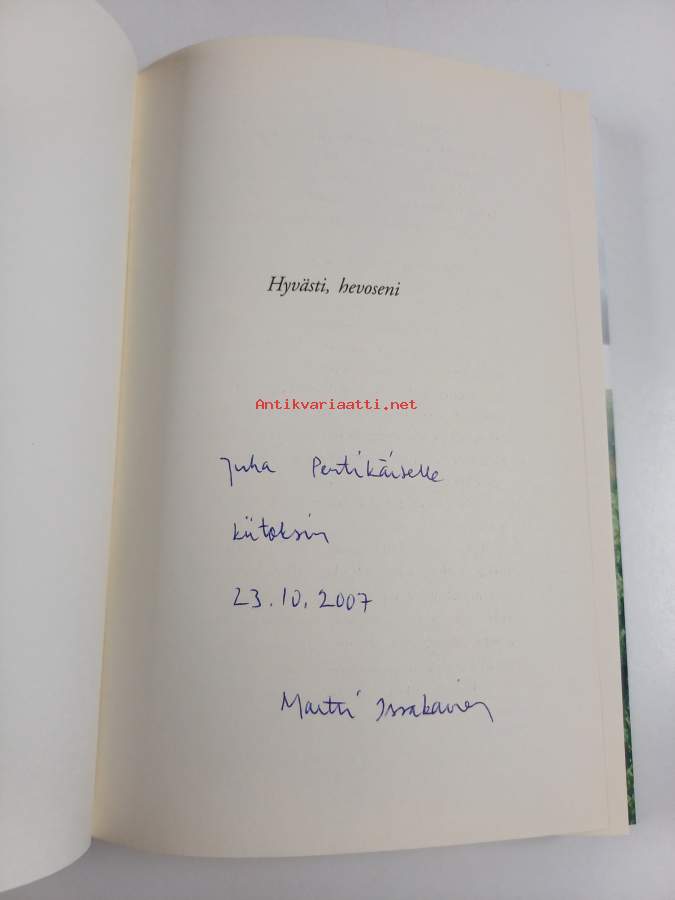 Hyvästi, hevoseni
Antikvariaatti.net
Juha Pentikäiselle
kiitoksin
23.10.2007
Martti Issakainen